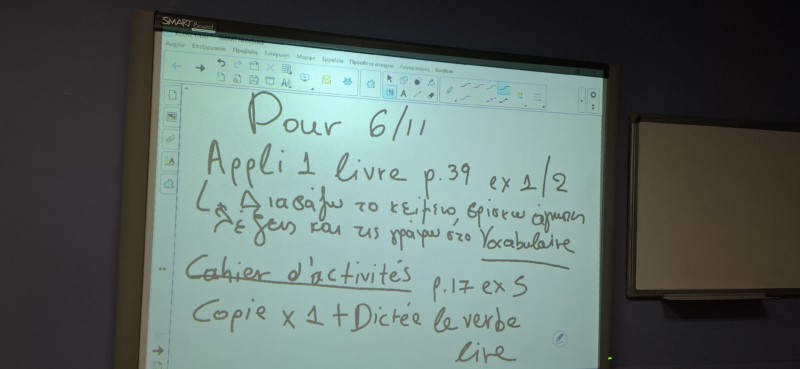 SMART Board
Αρχείο Επεξεργασία Προβολή Εισαγωγή Μορφή Εργαλεία Πρόσθετα στοιχεία Βοήθεια
Pour 6/11
Appli 1 livre p.39 ex 1/2
Διαβάζω το κείμενο, βρίσκω άγνωστες
λέξεις και τις γράφω στο Vocabulaire
Cahier d'activités p.17 ex 5
Copie x 1 + Dictée le verbe
lire